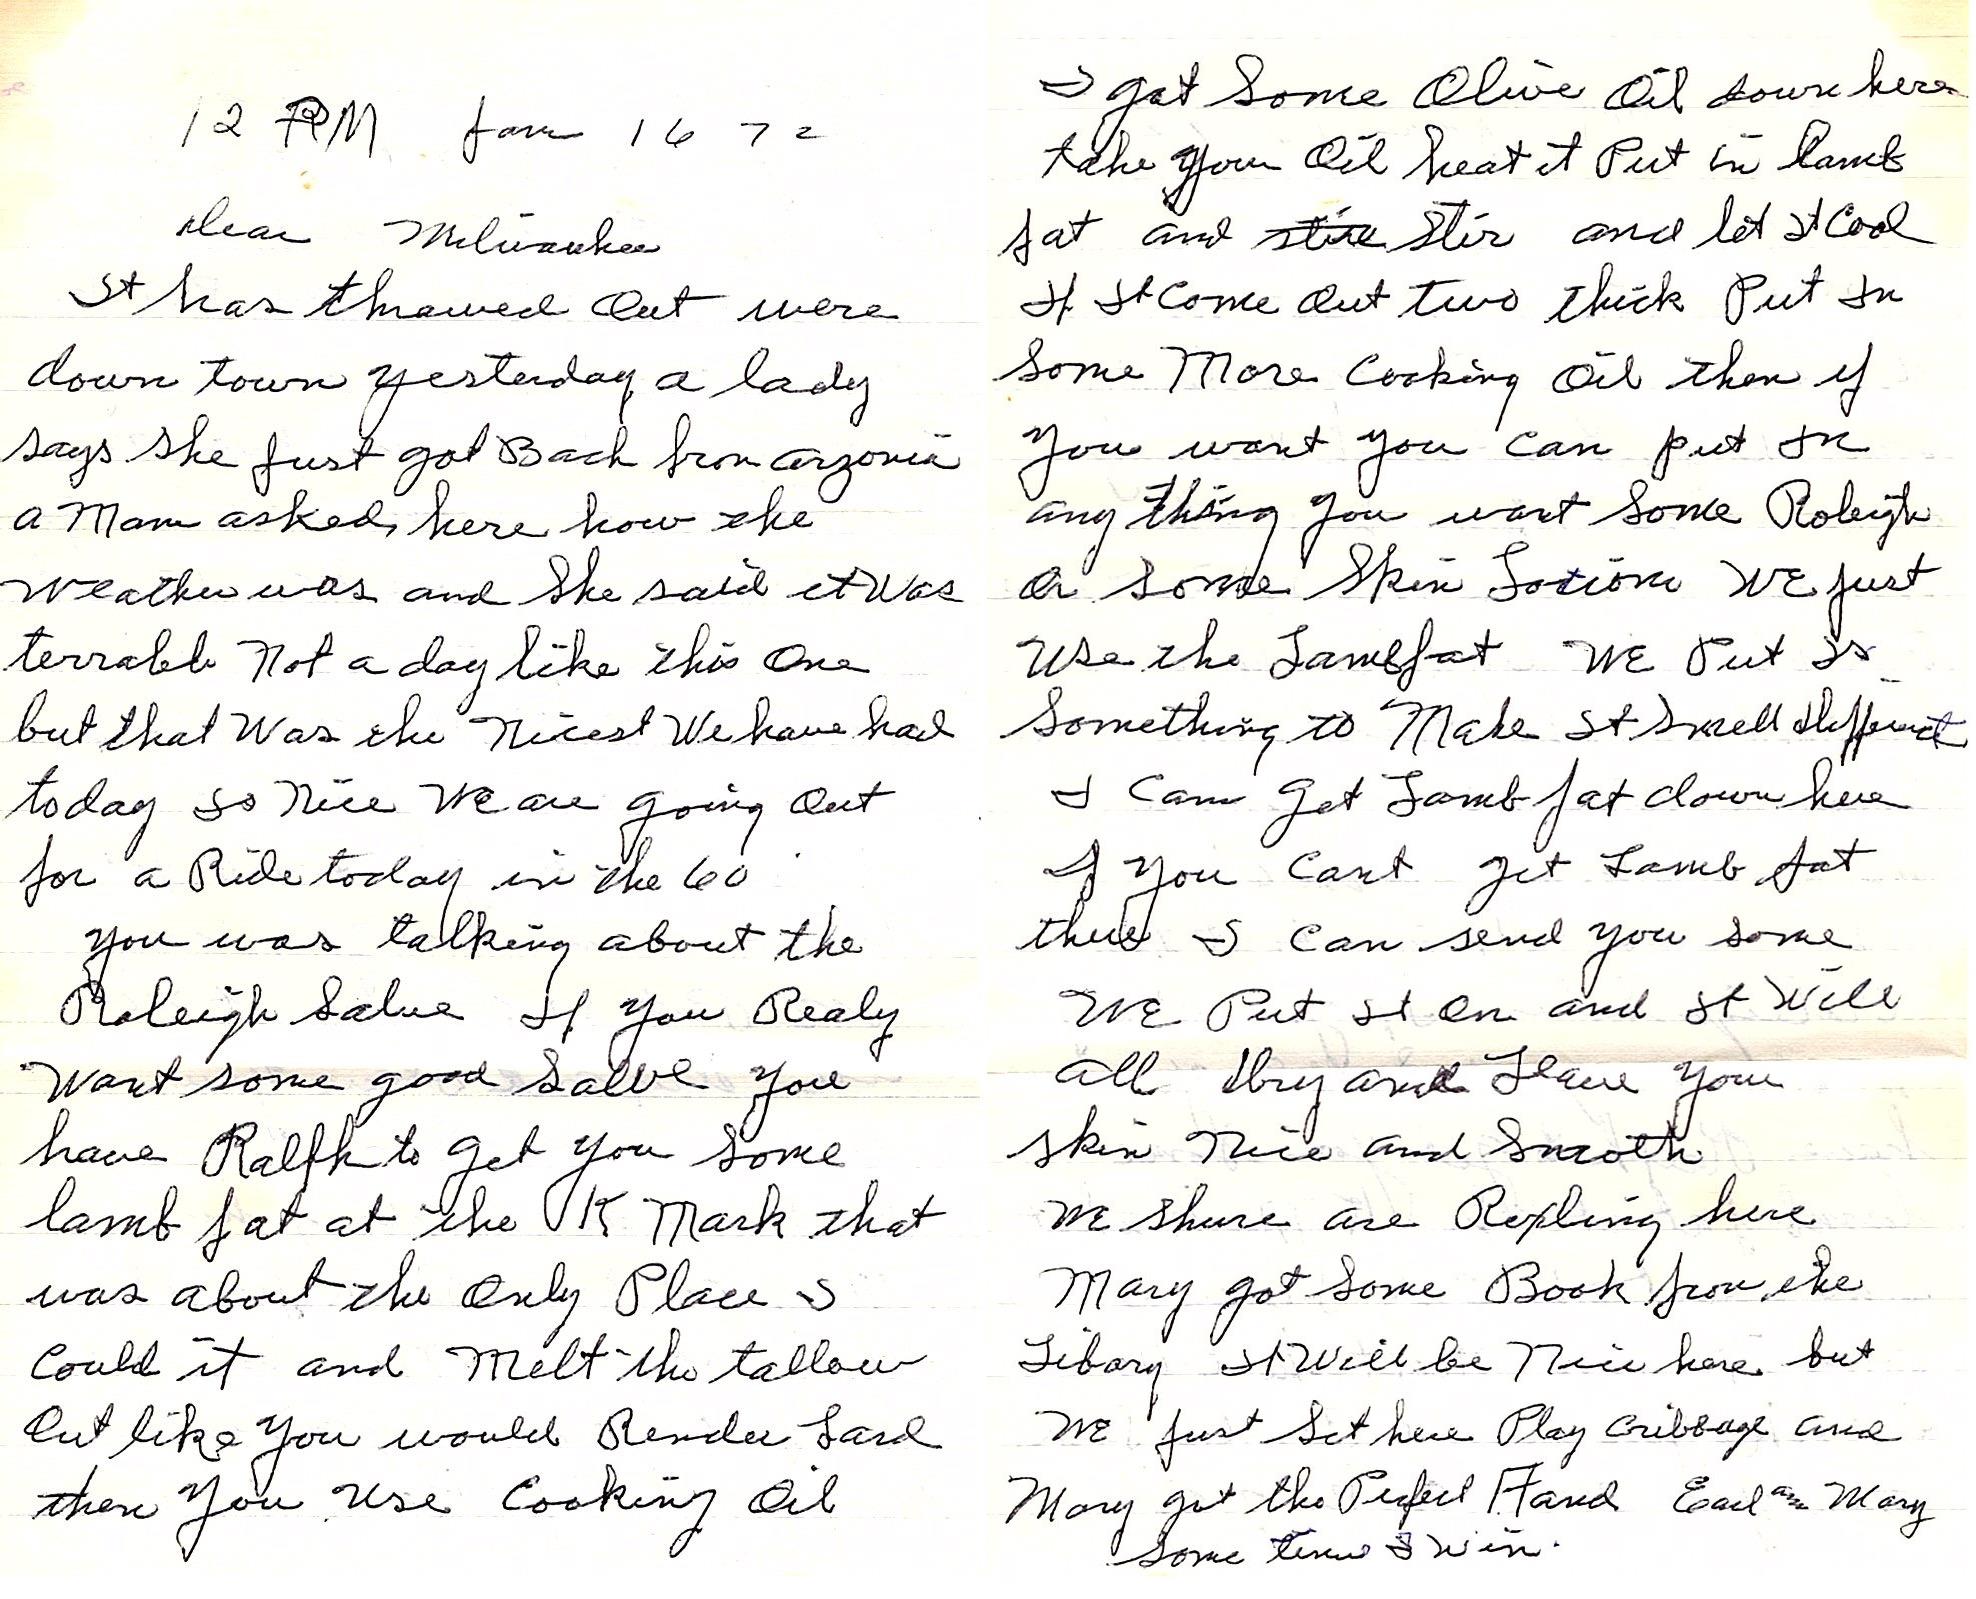 12 PM Jan 16 72
Dear Milwaukee
It has thrawed Out were
down town yesterday a lady
says she just got Back from arzonia
a Man asked here how the
Weather was and She said it Was
terrabl Not a day like this One
but that Was the Nicest We have had
today is Nice We are going Out
for a Ride today in the 60
you was talking about the
Raleigh Salve If you Realy
Want some good Salve you
have Ralph to get you Some
lamb fat at the K Mark that
was about the Only Place I
Could it and Melt the tallow
Out like you would Render Lard
then you use Cooking Oil
I got Some Olive Oil down here
take your Oil heat it Put in lamb
fat and stire Stir and let It Cool
If It Come Out two thick Put In
Some More Cooking Oil then if
you want you can put In
any thing you want Some Roleigh
Or Some Skin Lotion WE just
Use the Lambfat WE Put Is
Something to Make It Smell different
I Can Get Lamb fat down here
If you Cant get Lamb fat
there I can send you some
WE Put It On and It Will
all dry and Leave your
skin Nice and Smooth
WE shure are Repling here
Mary got Some Book from the
Libary It Will be Nice here but
WE just Set here Play Cribbage and
Mary got the Perfect Hand Earl an Mary
Some times I Win.